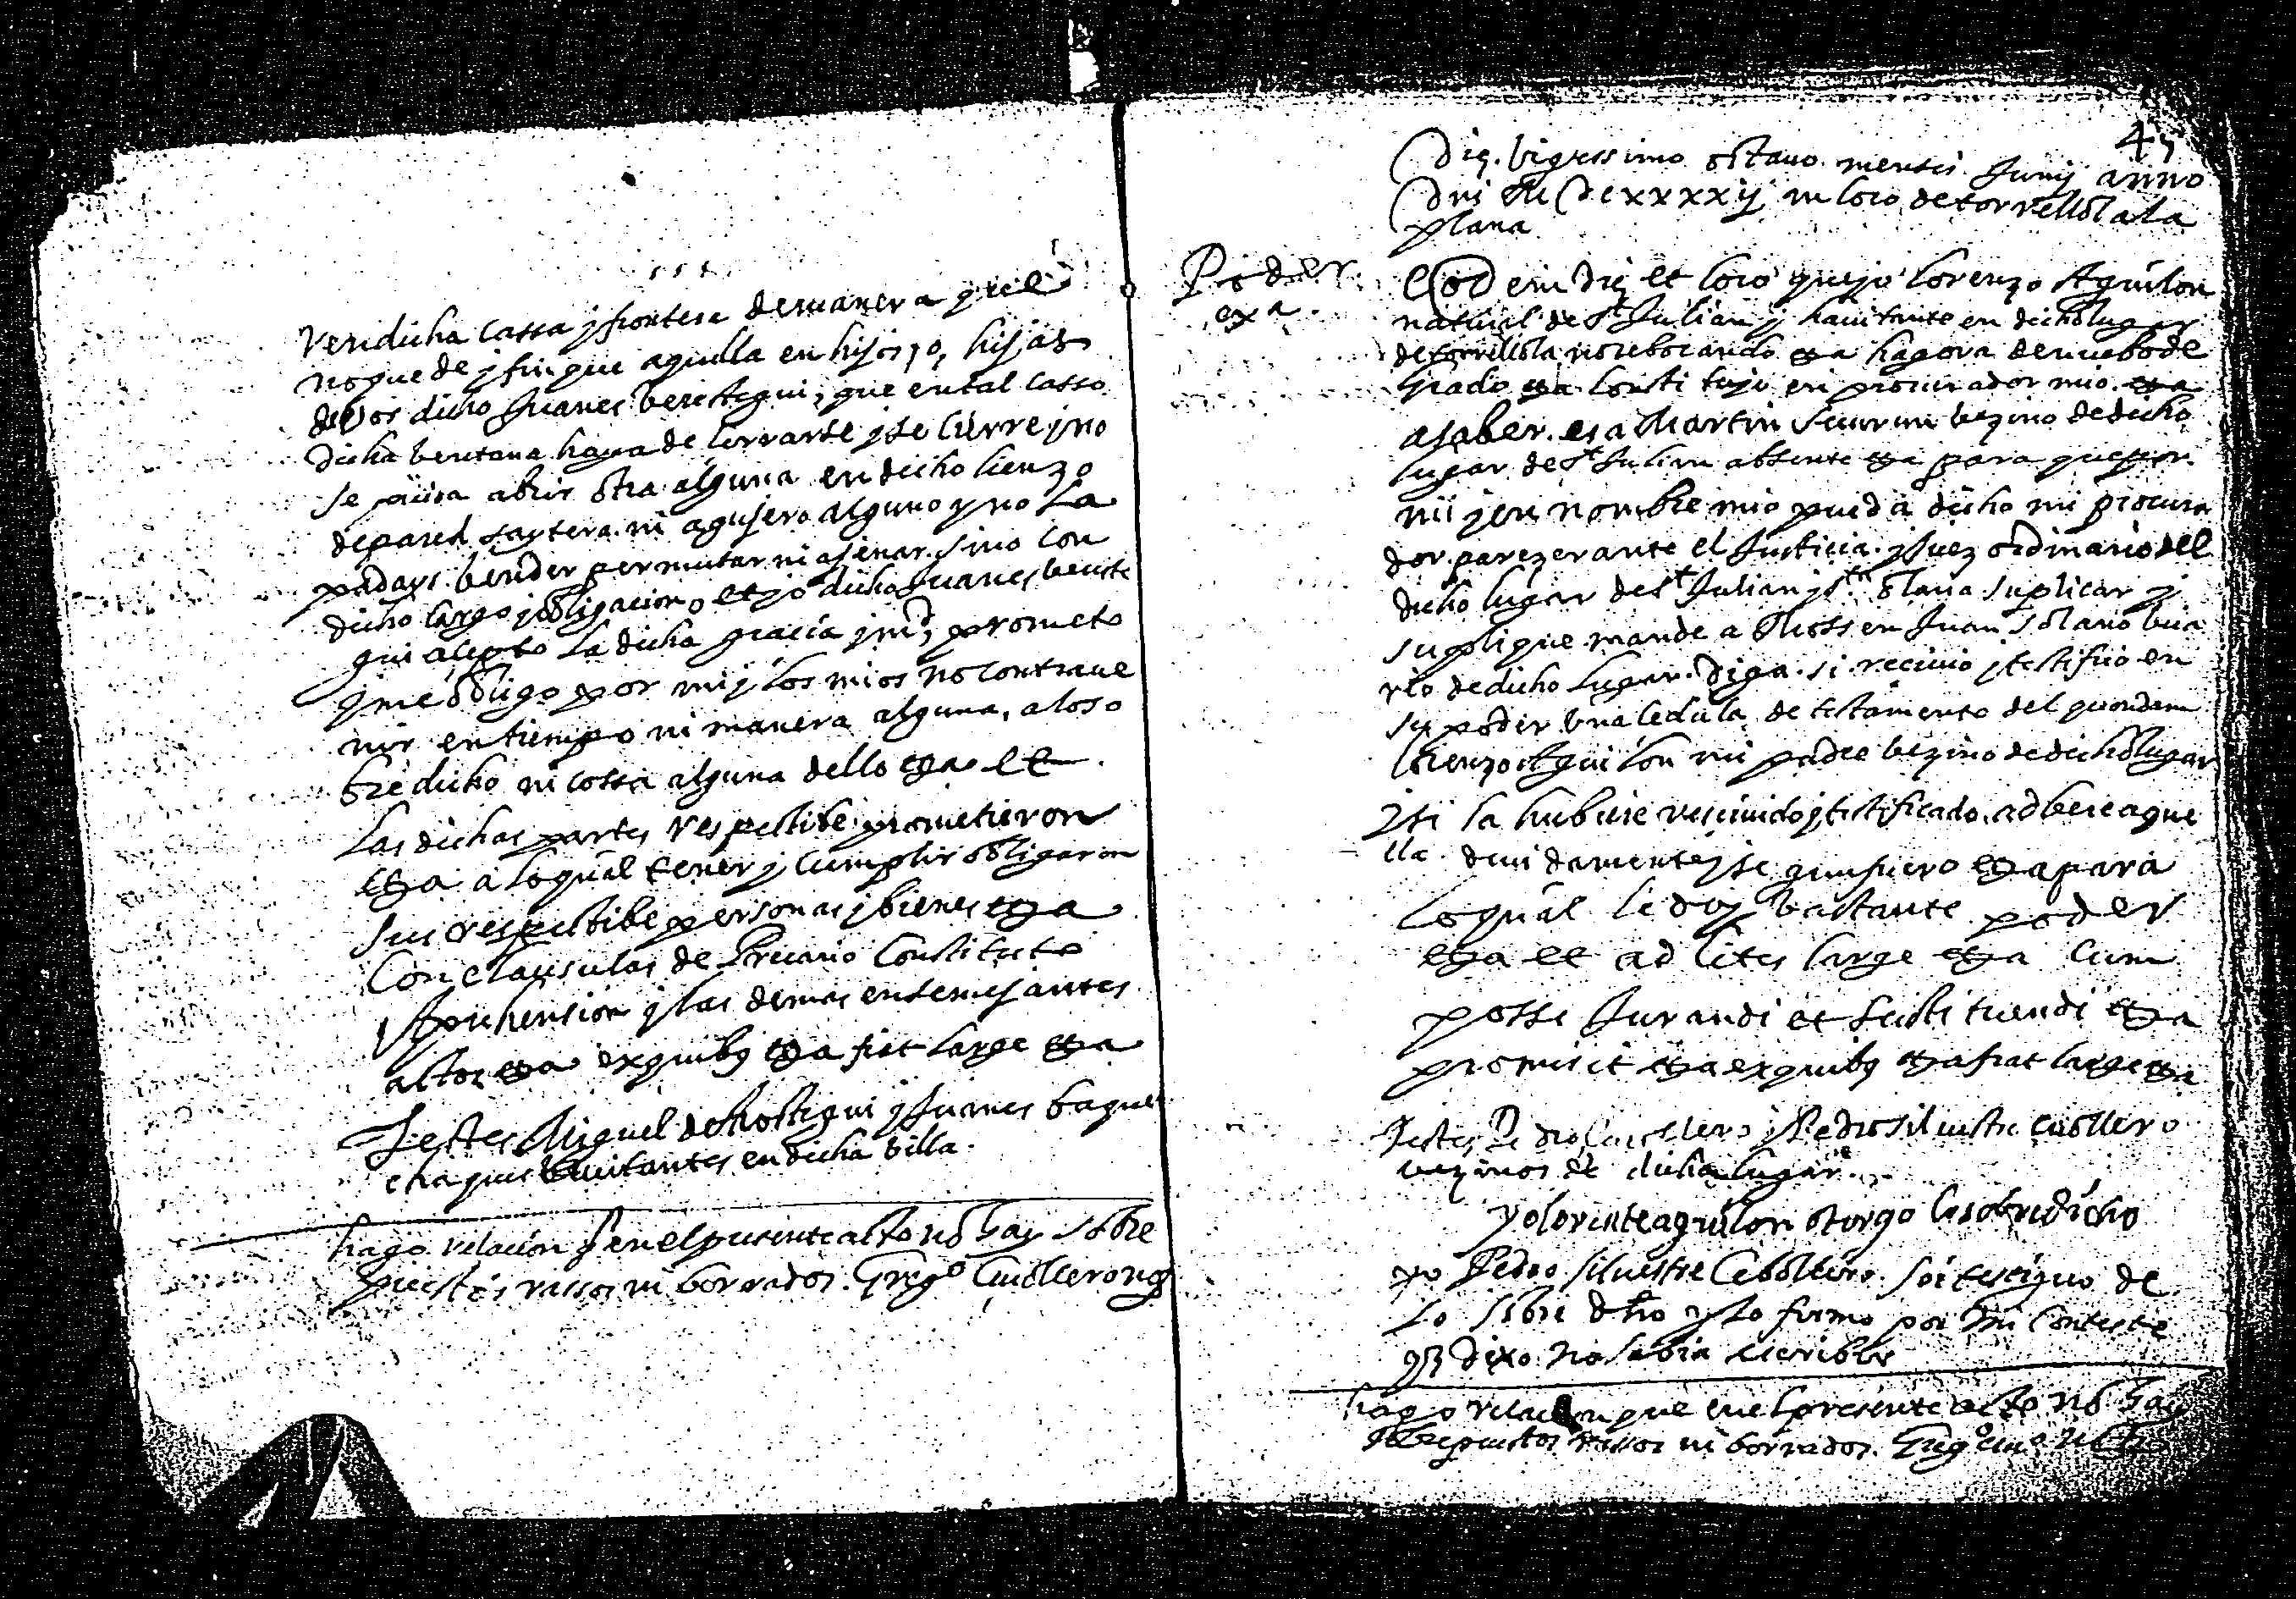 Ven dicha cassa y frontera demanera que si
no quede y finque aquella en hijos, o, hijas
de vos dicho Juanes berestegui, que en tal casso
dicha bentana haya de cerrarse y se cierre y no
se pueda abrir otra alguna en dicho lienzo
de pared ni agujero alguno y no la
podays bender permutar ni ajenar sino con
dicho cargo y obligacion, et yo dicho Juanes berste
gui acepto la dicha gracia y prometo
y me obligo por mi y los mios no contrave
nir en tiempo ni manera alguna, a lo so
bre dicho ni cossa alguna dello etza et
las dichas partes respectibe prometieron
etza a lo qual tener y cumplir obligaron
sus respectibe personas y bienes etza
Con clausulas de precario Constituto
Aprehension y las demas en semejantes
actos etza ex quibus etza fiat large etza
Testes Miguel de y Juanes
havitantes en dicha billa.
hago relacion q en el presente acto no hay sobre
puestos rassos ni borrados. Grego Cuollero no
45
Die vigessimo octavo mensis Junij anno
Dni M DCxxxxij in loco de torrellola la
plana
Poder
exa.
Eodem die et loco que yo Lorenzo Aguilon
natural de St Julian y havitante en dicho lugar
de torrellola no rebocando etza hagora de nuebo de
grado etza Constituyo en procurador mio etza
a saber es a Martin bezino de dicho
lugar de St Julian absente etza para que por
mi y en nombre mio pueda dicho mi procura
dor parezer ante el Justicia y Juez ordinario del
dicho lugar de St Julian y Sta olaria suplicar y
suplique mande a Mossen Juan Solano vica
rio de dicho lugar. Diga si recivio y testifico en
su poder una cedula de testamento del quondam
Lorenzo Aguilon mi padre bezino de dicho lugar
y si la hubiere recivido y testificado adbere aque
lla devidamente y segun fuero etza para
lo qual le doy bastante poder
etza et ad lites large etza Cum
posse Jurandi et substituendi etza
promisit etza ex quibus etza fiat large etza
Testes Pedro y Pedro Silvestre Cuollero
vezinos de dicho lugar.
yo lorente aguilon otorgo lo sobre dicho
yo Pedro Silvestre Cebollero soi testiguo de
lo sobre dho y lo firmo por mi Conteste
q dixo no sabia escribir
hago relacion que en el presente acto no hay
sobrepuestos rassos ni borrados.